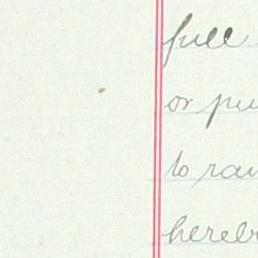 full
or pu
to rai
hereb